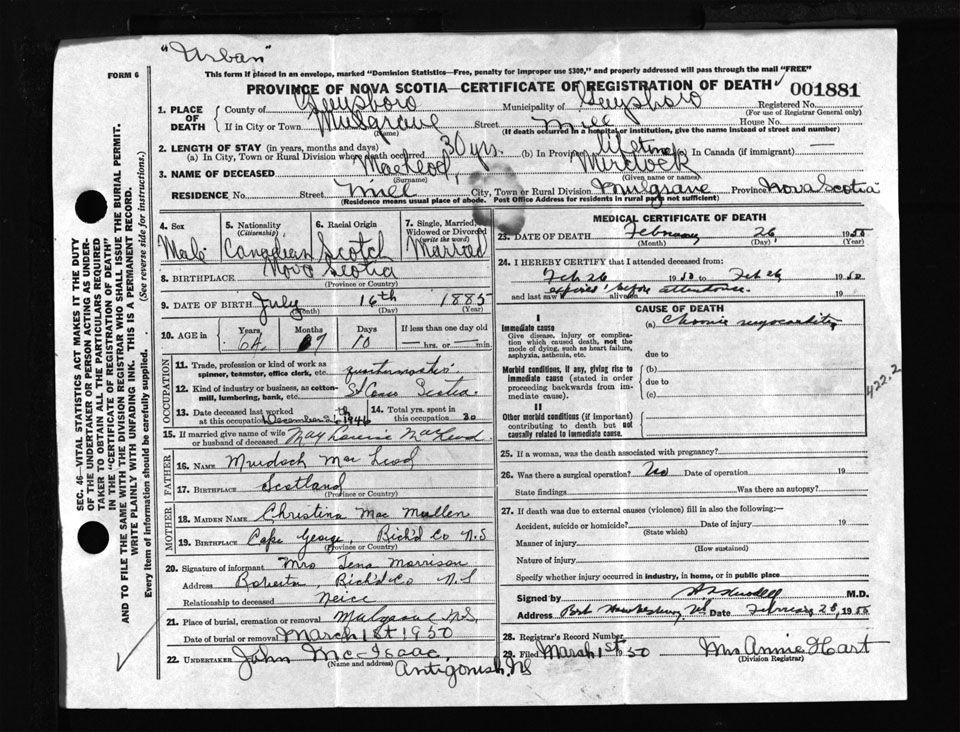 "Urban"
FORM 6
This form if placed in an envelope, marked "Dominion Statistics—Free, penalty for improper use $300," and properly addressed will pass through the mail "FREE"
PROVINCE OF NOVA SCOTIA—CERTIFICATE OF REGISTRATION OF DEATH 001881
1. PLACE OF DEATH County of Guysboro Municipality of Guysboro Registered No.
(For use of Registrar General only)
If in City or Town Mulgrave Street Mill House No.
(Name) (If death occurred in a hospital or institution, give the name instead of street and number)
2. LENGTH OF STAY (in years, months and days)
(a) In City, Town or Rural Division where death occurred 30 yrs. (b) In Province lifetime (c) In Canada (if immigrant) —
3. NAME OF DECEASED MacLeod, Murdock
(Surname) (Given name or names)
RESIDENCE No. Street Mill City, Town or Rural Division Mulgrave Province Nova Scotia
(Residence means usual place of abode. Post Office Address for residents in rural parts not sufficient)
4. Sex Male
5. Nationality (Citizenship) Canadian
6. Racial Origin Scotch
7. Single, Married, Widowed or Divorced (write the word) Married
8. BIRTHPLACE Nova Scotia
(Province or Country)
9. DATE OF BIRTH July 16th 1885
(Month) (Day) (Year)
10. AGE in Years 64 Months 7 Days 10 If less than one day old — hrs. or — min.
OCCUPATION
11. Trade, profession or kind of work as spinner, teamster, office clerk, etc.
12. Kind of industry or business, as cotton-mill, lumbering, bank, etc. Scotia
13. Date deceased last worked at this occupation December 1946
14. Total yrs. spent in this occupation 30
15. If married give name of wife or husband of deceased May Louise MacLeod
FATHER
16. NAME Murdoch Mac Leod
17. BIRTHPLACE Scotland
(Province or Country)
MOTHER
18. MAIDEN NAME Christina Mac Mullen
19. BIRTHPLACE Cape George, Rich'd Co N.S
(Province or Country)
20. Signature of informant Mrs Tena Morrison
Address Roberta, Rich'd Co N.S
Relationship to deceased Neice
21. Place of burial, cremation or removal Mulgrave N.S.
Date of burial or removal March 1st 1950
22. UNDERTAKER John McIsaac,
(Name and address)
Antigonish, NS
MEDICAL CERTIFICATE OF DEATH
23. DATE OF DEATH February 26, 1950
(Month) (Day) (Year)
24. I HEREBY CERTIFY that I attended deceased from:
Feb 26 1950 to Feb 26 1950
and last saw alive on expired before attendance.
CAUSE OF DEATH
I
Immediate cause
Give disease, injury or complication which caused death, not the mode of dying, such as heart failure, asphyxia, asthenia, etc.
(a) Chronic myocarditis
due to
Morbid conditions, if any, giving rise to immediate cause (stated in order proceeding backwards from immediate cause).
(b)
due to
(c)
422.2
II
Other morbid conditions (if important) contributing to death but not causally related to immediate cause.
25. If a woman, was the death associated with pregnancy?
26. Was there a surgical operation? No Date of operation 19
State findings Was there an autopsy?
27. If death was due to external causes (violence) fill in also the following:—
Accident, suicide or homicide? Date of injury 19
(State which)
Manner of injury
(How sustained)
Nature of injury
Specify whether injury occurred in industry, in home, or in public place
Signed by M.D.
Address Port Hawkesbury NS Date February 28, 1950
28. Registrar's Record Number
29. Filed March 1st 1950 Mrs Annie Hart
(Division Registrar)
SEC. 46—VITAL STATISTICS ACT MAKES IT THE DUTY
OF THE UNDERTAKER OR PERSON ACTING AS UNDER-
TAKER TO OBTAIN ALL THE PARTICULARS REQUIRED
IN THE "CERTIFICATE OF REGISTRATION OF DEATH"
AND TO FILE THE SAME WITH THE DIVISION REGISTRAR WHO SHALL ISSUE THE BURIAL PERMIT.
WRITE PLAINLY WITH UNFADING INK. THIS IS A PERMANENT RECORD.
Every item of information should be carefully supplied. (See reverse side for instructions.)